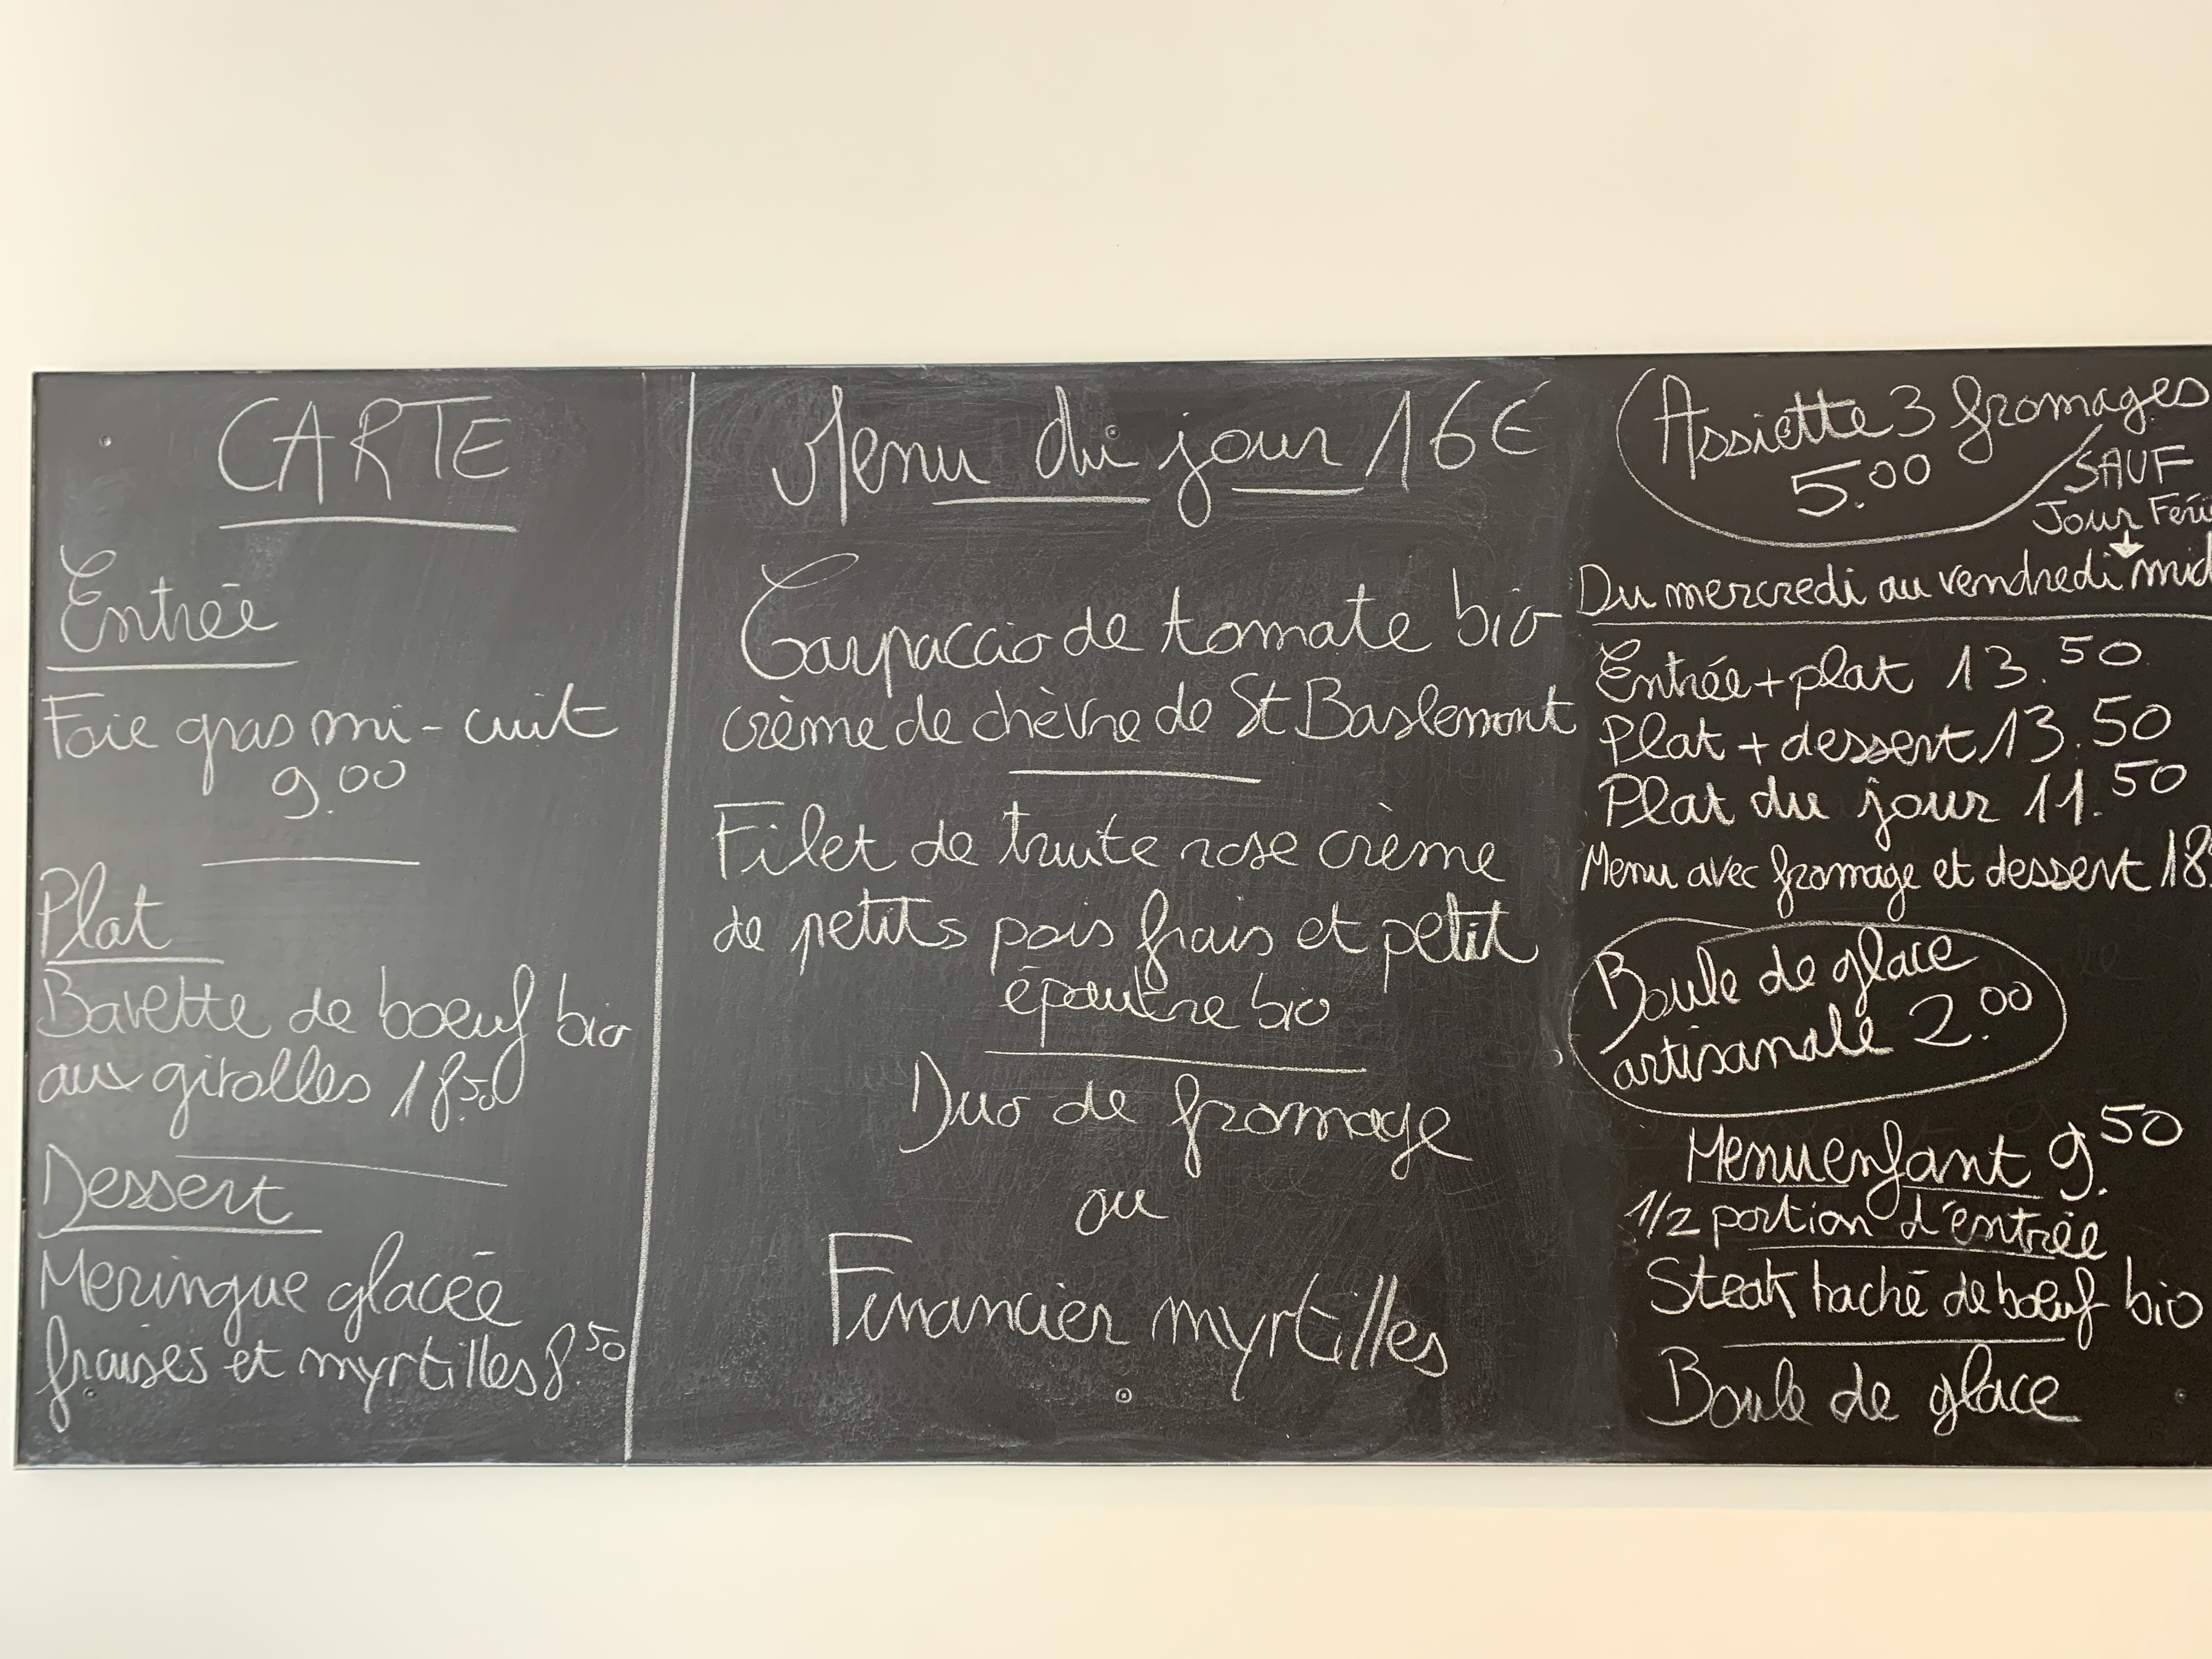 CARTE
Entrée
Foie gras mi-cuit
9.00
Plat
Bavette de boeuf bio
aux girolles 18.50
Dessert
Meringue glacée
fraises et myrtilles 8.50
Menu du jour 16€
Carpaccio de tomate bio
crème de chèvre de St Baslemont
Filet de truite rose crème
de petits pois frais et petit
épautre bio
Duo de fromage
ou
Financier myrtilles
Assiette 3 fromages
5.00
SAUF
Jour
Du mercredi au vendredi
Entrée + plat 13.50
Plat + dessert 13.50
Plat du jour 11.50
Menu avec fromage et dessert 18.
Boule de glace
artisanale 2.00
Menu enfant 9.50
1/2 portion d'entrée
Steak haché de boeuf bio
Boule de glace